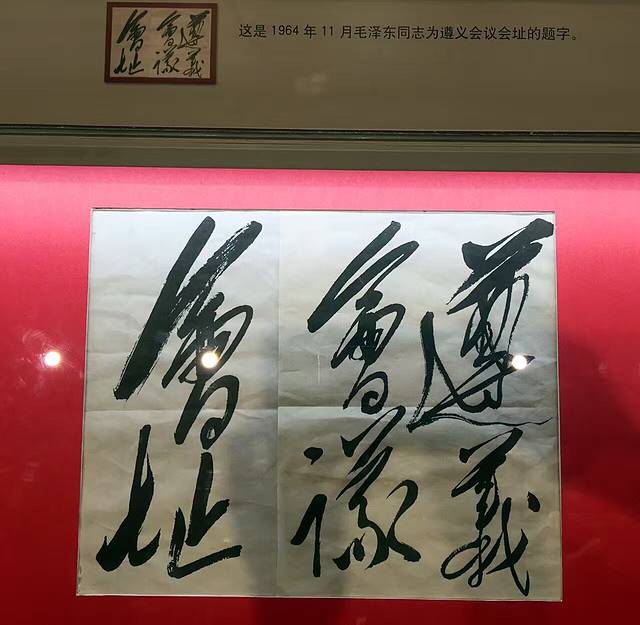 會址 會議 遵義
这是 1964 年 11 月毛泽东同志为遵义会议会址的题字。
遵義
會議
會址